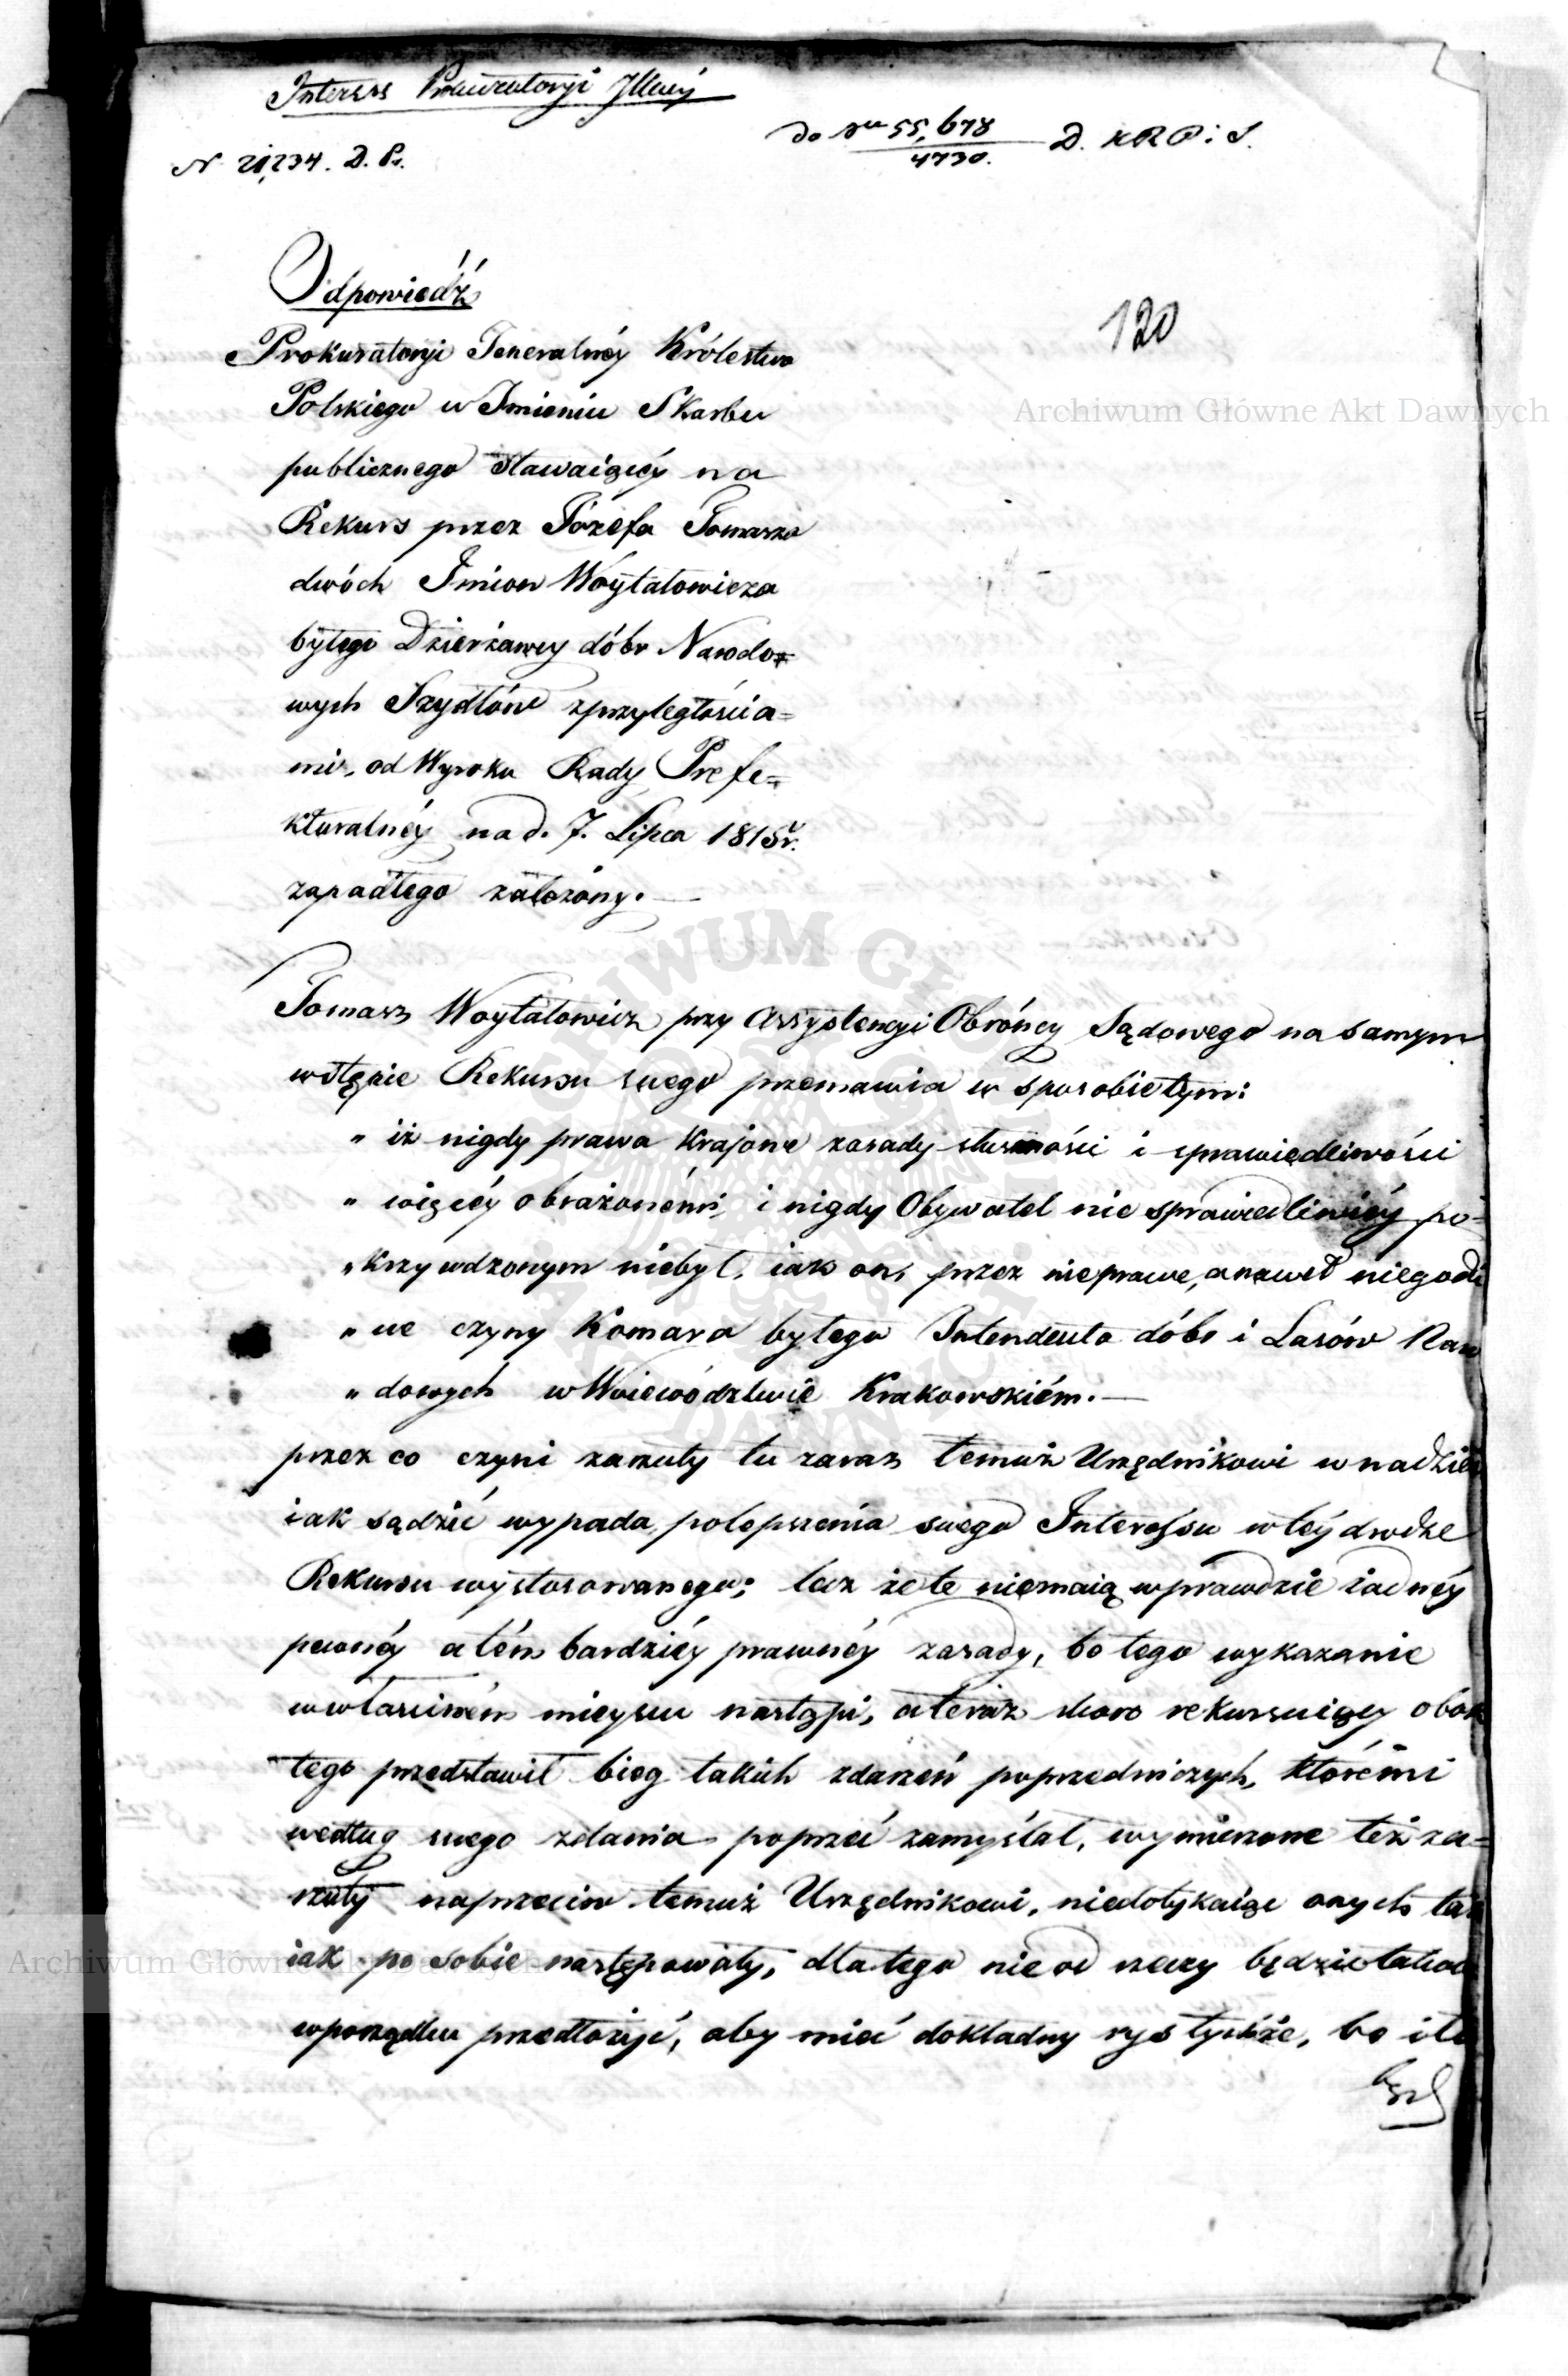 Interess Prokuratoryi
do Nru 55,678/4730. D. KRP: S.
N 21,234. D. Pr.
Odpowiedź
120
Prokuratoryi Jeneralnéy Królestwa
Polskiego w Imieniu Skarbu
publicznego stawaiącéy na
Rekurs przez Józefa Tomasza
dwóch Imion Woytatowicza
byłego Dzierżawcy dóbr Narodo=
wych Szydłów z przyległościa=
mi, od Wyroku Rady Prefe=
kturalnéy na d. 7. Lipca 1815 r.
zapadłego założony. —
Tomasz Woytatowicz przy Assystencyi Obrońcy Sądowego na samym
wstępie Rekursu swego przemawia w sposobie tym:
„ iż nigdy prawa Krajowe zasady słuszności i sprawiedliwości
„ więcéy obrażonémi, i nigdy Obywatel nie sprawiedliwiéy po=
„ krzywdzonym niebył, iak on, przez nieprawe, a nawet niegodzi
„ we czyny Komara byłego Intendenta dóbr i Lasów Naro
„ dowych w Woiewództwie Krakowskiém. —
przez co czyni zarzuty tu zaraz temuż Urzędnikowi w nadziei
iak sądzić wypada polepszenia swego Interessu w téy drodze
Rekursu wystosowanego; lecz że te niemaią wprawdzie żadnéy
pewnéy a tém bardziéy prawnéy zasady, bo tego wykazanie
w właściwém mieyscu nastąpi, a teraz skoro rekursuiący obok
tego przedstawił bieg takich zdarzeń poprzedniczych, któremi
według swego zdania poprzeć zamyślał, wymierzone też za=
rzuty naprzeciw temuż Urzędnikowi, niedotykaiąc onych tak
iak po sobie następowały, dla tego nie od rzeczy będzie takowe
w porządku przedłożyć, aby mieć dokładny rys tychże, bo i te